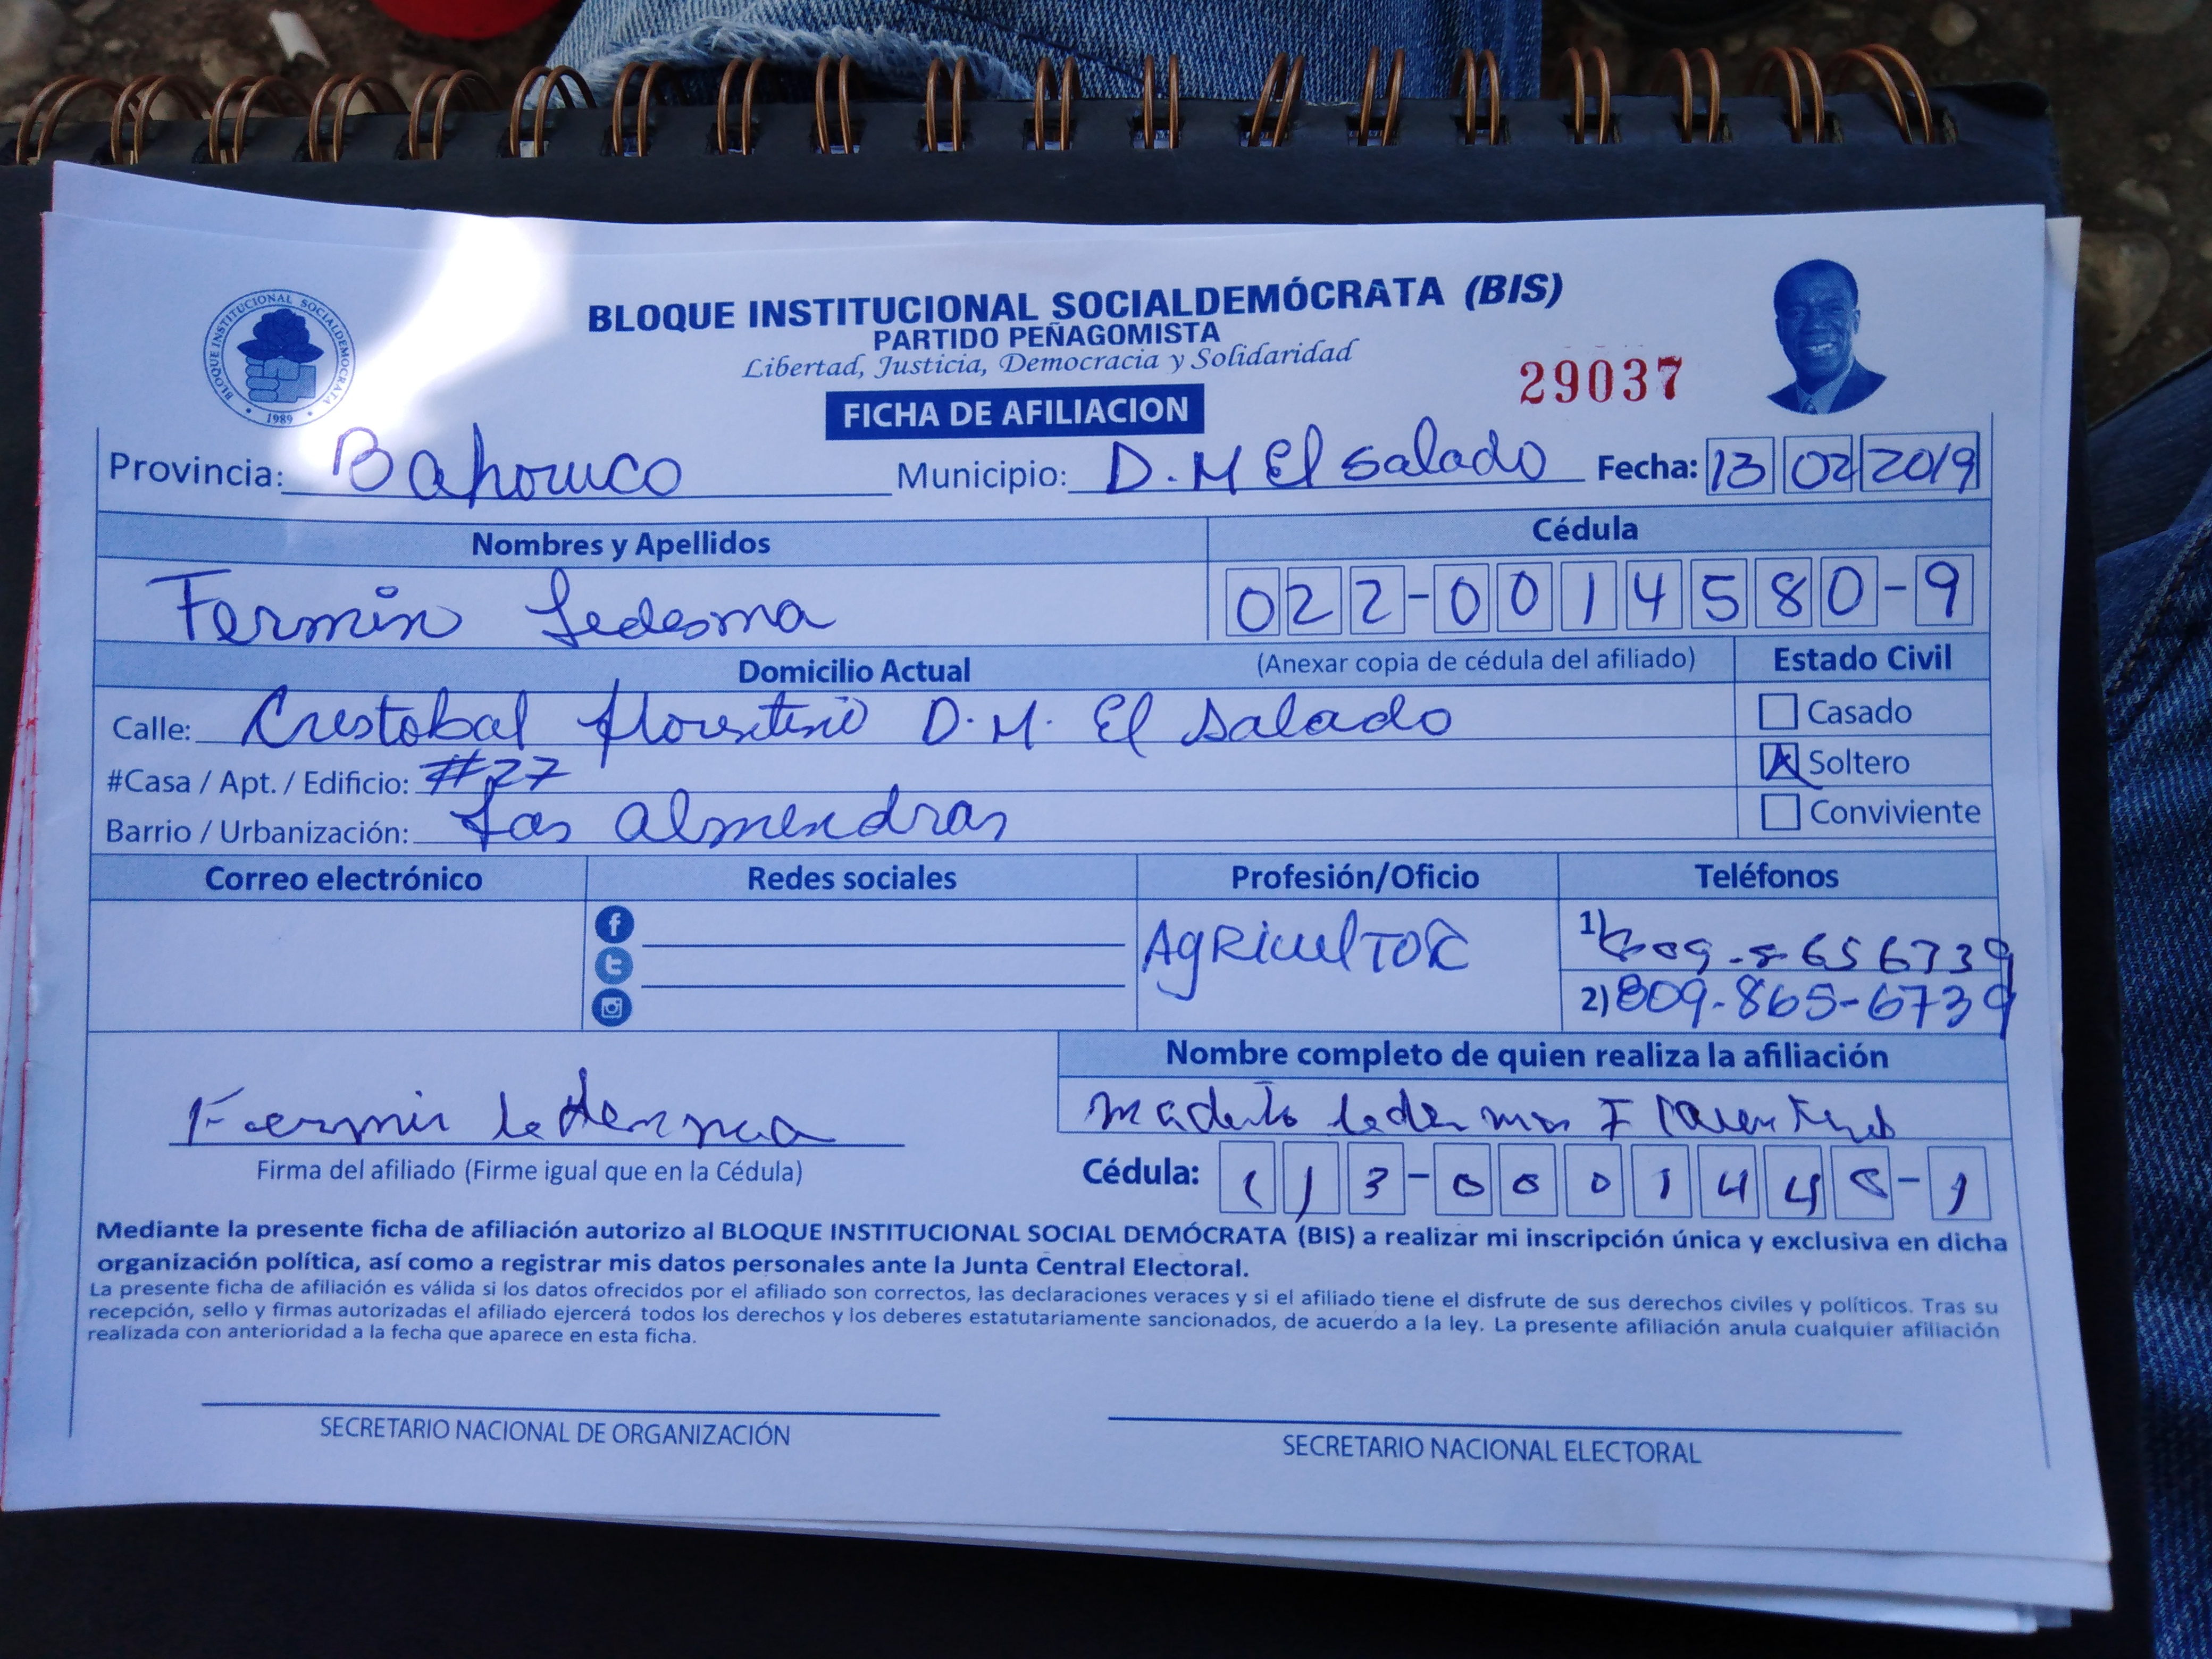 BLOQUE INSTITUCIONAL SOCIALDEMÓCRATA
1989
BLOQUE INSTITUCIONAL SOCIALDEMÓCRATA (BIS)
PARTIDO PEÑAGOMISTA
Libertad, Justicia, Democracia y Solidaridad
29037
FICHA DE AFILIACION
Provincia: Bahoruco Municipio: D.M El Salado Fecha: 13 02 2019
Nombres y Apellidos Cédula
Fermin Ledesma 022-0014580-9
Domicilio Actual (Anexar copia de cédula del afiliado) Estado Civil
Calle: Crestobal florentino D.M. El Salado Casado
#Casa / Apt. / Edificio: #27 Soltero
Barrio / Urbanización: Las almendras Conviviente
Correo electrónico Redes sociales Profesión/Oficio Teléfonos
AgRiculTOR 1) 809-8656739
2) 809-865-6739
Nombre completo de quien realiza la afiliación
Fermin
Firma del afiliado (Firme igual que en la Cédula) Cédula: 113-000144
Mediante la presente ficha de afiliación autorizo al BLOQUE INSTITUCIONAL SOCIAL DEMÓCRATA (BIS) a realizar mi inscripción única y exclusiva en dicha
organización política, así como a registrar mis datos personales ante la Junta Central Electoral.
La presente ficha de afiliación es válida si los datos ofrecidos por el afiliado son correctos, las declaraciones veraces y si el afiliado tiene el disfrute de sus derechos civiles y políticos. Tras su
recepción, sello y firmas autorizadas el afiliado ejercerá todos los derechos y los deberes estatutariamente sancionados, de acuerdo a la ley. La presente afiliación anula cualquier afiliación
realizada con anterioridad a la fecha que aparece en esta ficha.
SECRETARIO NACIONAL DE ORGANIZACIÓN SECRETARIO NACIONAL ELECTORAL